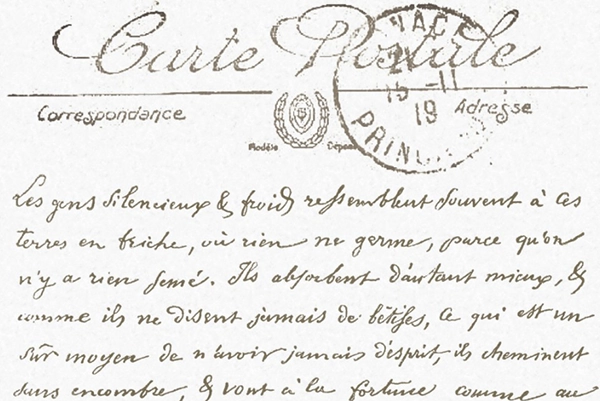 Carte Postale
Correspondance
Adresse
Modèle Déposé
NACE
15 -11
19
PRIN
Les gens silencieux & froids ressemblent souvent à ces
terres en friche, où rien ne germe, parce qu'on
n'y a rien semé. Ils absorbent d'autant mieux, &
comme ils ne disent jamais de bêtises, ce qui est un
sûr moyen de n'avoir jamais d'esprit, ils cheminent
sans encombre, & vont à la fortune comme au